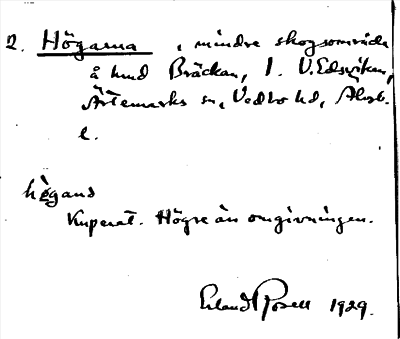 2. Högarna, mindre skogsområde
å hmd Bräckan, 1. V. Edsviken,
Ärtemarks sn, Vedbo hd, Älvsb.
l.
högans
Kuperat. Högre än omgivningen.
Erland Rosell 1929.